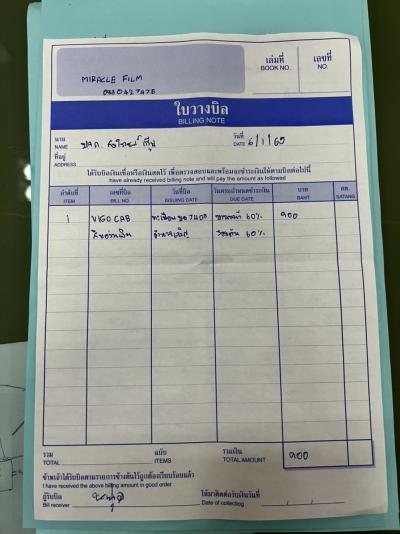 MIRACLE FILM
เล่มที่ เลขที่
BOOK NO. NO.
ใบวางบิล
BILLING NOTE
นาม วันที่
NAME DATE 6/1/65
ที่อยู่
ADDRESS
ได้รับบิลเงินเชื่อหรือเงินสดไว้ เพื่อตรวจสอบและพร้อมจะชำระเงินให้ตามบิลต่อไปนี้
have already received billing note and will pay the amount as followed
ลำดับที่ เลขที่บิล วันที่บิล วันครบกำหนดชำระเงิน บาท สต.
ITEM BILL NO. ISSUING DATE DUE DATE BAHT SATANG
1 VIGO CAB 60% 900
60%
รวม ฉบับ รวมเงิน
TOTAL ITEMS TOTAL AMOUNT 900
ข้าพเจ้าได้รับบิลตามรายการข้างต้นไว้ถูกต้องเรียบร้อยแล้ว
I have received the above billing amount in good order
ผู้รับบิล ให้มาติดต่อรับเงินวันที่
Bill receiver Date of collecting / /